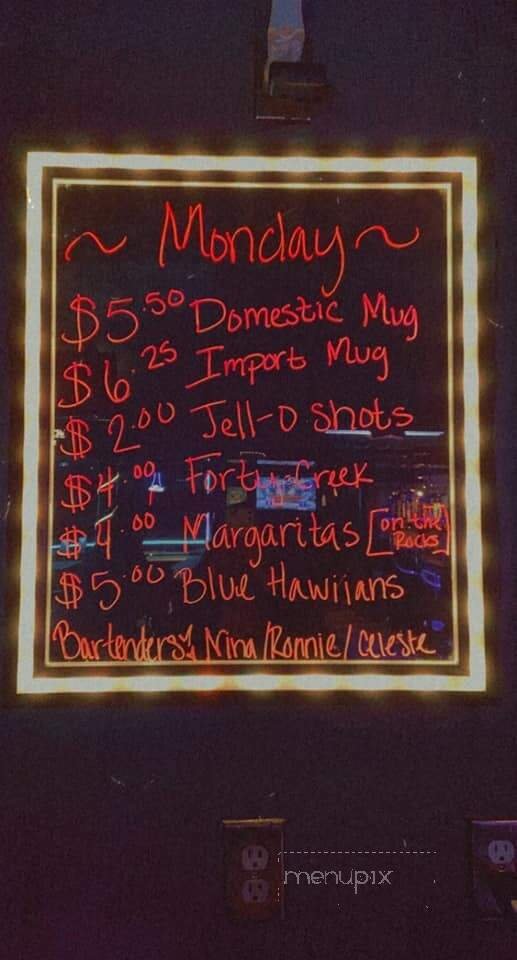 ~ Monday ~
$5.50 Domestic Mug
$6.25 Import Mug
$2.00 Jell-O Shots
$4.00 Forty Creek
$4.00 Margaritas [on the Rocks]
$5.00 Blue Hawiians
Bartenders Nina/Ronnie/Celeste
menupix